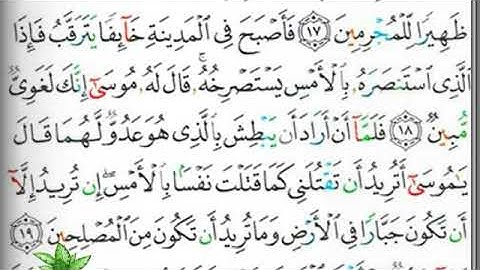 ظَهِيرًا لِّلْمُجْرِمِينَ ١٧ فَأَصْبَحَ فِي الْمَدِينَةِ خَآئِفًا يَتَرَقَّبُ فَإِذَا
الَّذِي اسْتَنصَرَهُۥ بِالْأَمْسِ يَسْتَصْرِخُهُۥ ۚ قَالَ لَهُۥ مُوسَىٰٓ إِنَّكَ لَغَوِيٌّ
مُّبِينٌ ١٨ فَلَمَّآ أَنْ أَرَادَ أَن يَبْطِشَ بِالَّذِي هُوَ عَدُوٌّ لَّهُمَا قَالَ
يَٰمُوسَىٰٓ أَتُرِيدُ أَن تَقْتُلَنِي كَمَا قَتَلْتَ نَفْسًۢا بِالْأَمْسِ ۖ إِن تُرِيدُ إِلَّآ
أَن تَكُونَ جَبَّارًا فِي الْأَرْضِ وَمَا تُرِيدُ أَن تَكُونَ مِنَ الْمُصْلِحِينَ ١٩